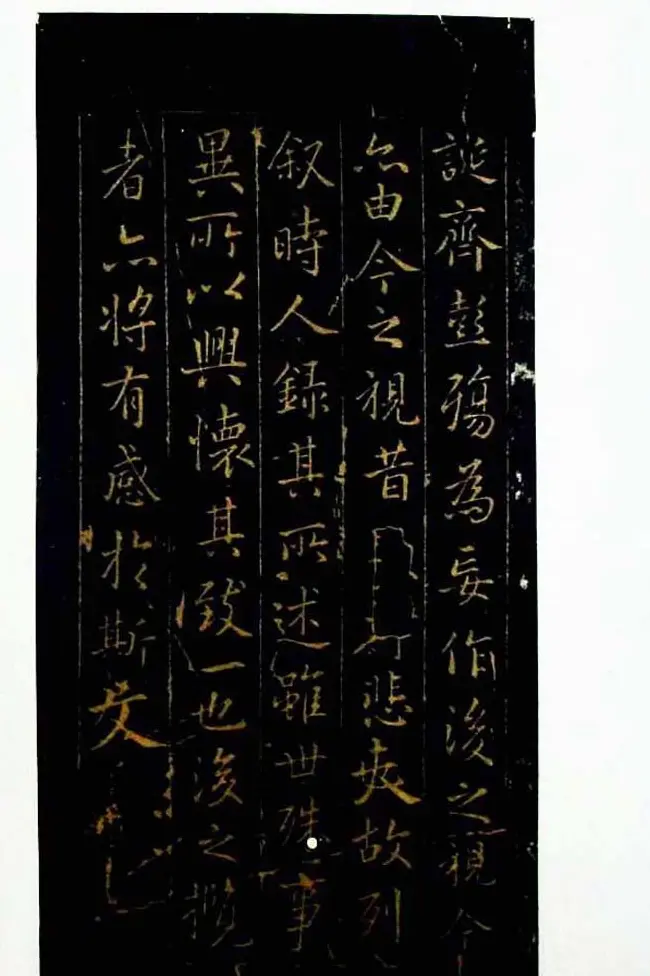 誕齊彭殤為妄作後之視今
亦由今之視昔悲夫故列
叙時人録其所述雖世殊事
異所以興懷其致一也後之攬
者亦将有感於斯文